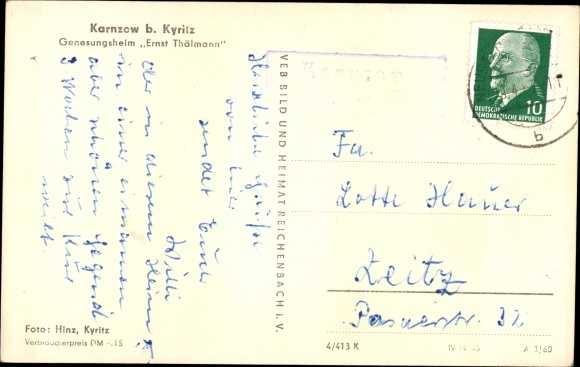 Karnzow b. Kyritz
Genesungsheim „Ernst Thälmann"
Herzliche Grüße
von hier
sendet Euch
Willi
der in diesem Heim
in einer einsamen
aber schönen Gegend
3 Wochen zur Kur
weilt.
VEB BILD UND HEIMAT REICHENBACH i. V.
Karnzow
DEUTSCHE
DEMOKRATISCHE REPUBLIK
10
b
Fa.
Lotte Hauer
Zeitz
Posaerstr. 32
Foto: Hinz, Kyritz
Verbraucherpreis DM -.15
4/413 K
A 1/60